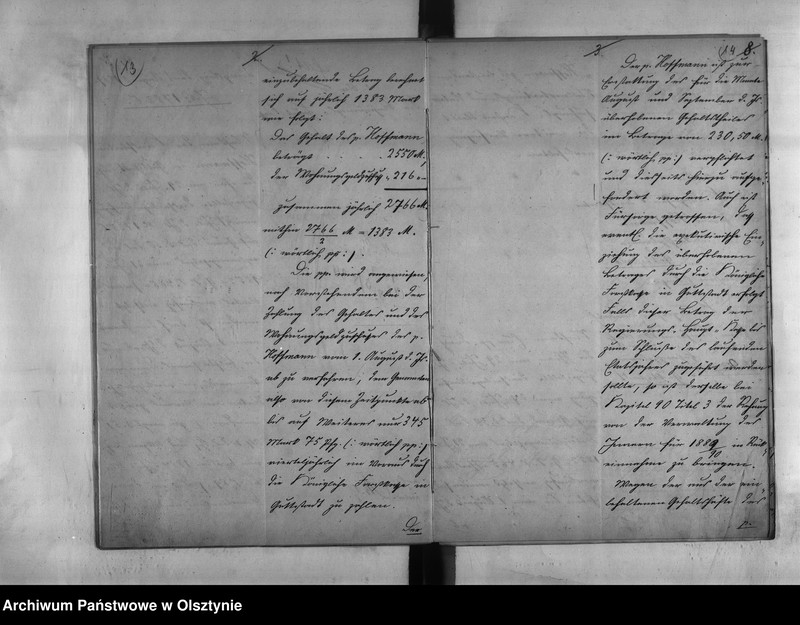 13
2.
einzubehaltende Betrag berechnet
sich auf jährlich 1383 Mark
wie folgt:
Das Gehalt des p. Hoffmann
beträgt . . . . 2550 M.,
der Wohnungsgeldzuschuß 216 "
zusammen jährlich 2766 M.
mithin 2766/2 M = 1383 M.
(: wörtlich pp :).
Die pp. wird angewiesen,
nach Vorstehendem bei der
Zahlung des Gehaltes und des
Wohnungsgeldzuschusses des p.
Hoffmann vom 1. August d. Js.
ab zu verfahren, dem Genannten
also von diesem Zeitpunkte ab
bis auf Weiteres nur 345
Mark 75 Pfg. (: wörtlich pp :)
vierteljährlich im Voraus durch
die Königliche Forstkasse in
Guttstadt zu zahlen.
Der
3.
14 8.
Der p. Hoffmann ist zur
Erstattung des für die Monate
August und September d. Js.
überhobenen Gehaltstheiles
im Betrage von 230,50 M.
(: wörtlich pp :) verpflichtet
und diesseits hierzu aufge-
fordert worden. Auch ist
Fürsorge getroffen, daß
event. die exekutivische Ein-
ziehung des überhobenen
Betrages durch die Königliche
Forstkasse in Guttstadt erfolgt.
Falls dieser Betrag der
Regierungs-Haupt-Kasse bis
zum Schlusse des laufenden
Etatsjahres zugeführt werden
sollte, so ist derselbe bei
Kapitel 90 Titel 3 der Rechnung
von der Verwaltung des
Innern für 1889/90 in Rück-
einnahme zu bringen.
Wegen der aus der ein-
behaltenen Gehaltshälfte des
p.
Archiwum Państwowe w Olsztynie